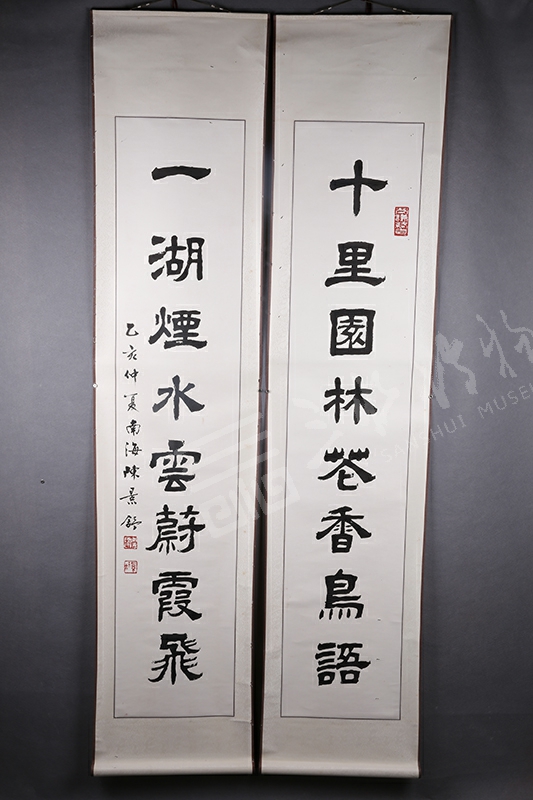 十里園林花香鳥語
一湖煙水雲蔚霞飛
乙亥仲夏南海陳景舒